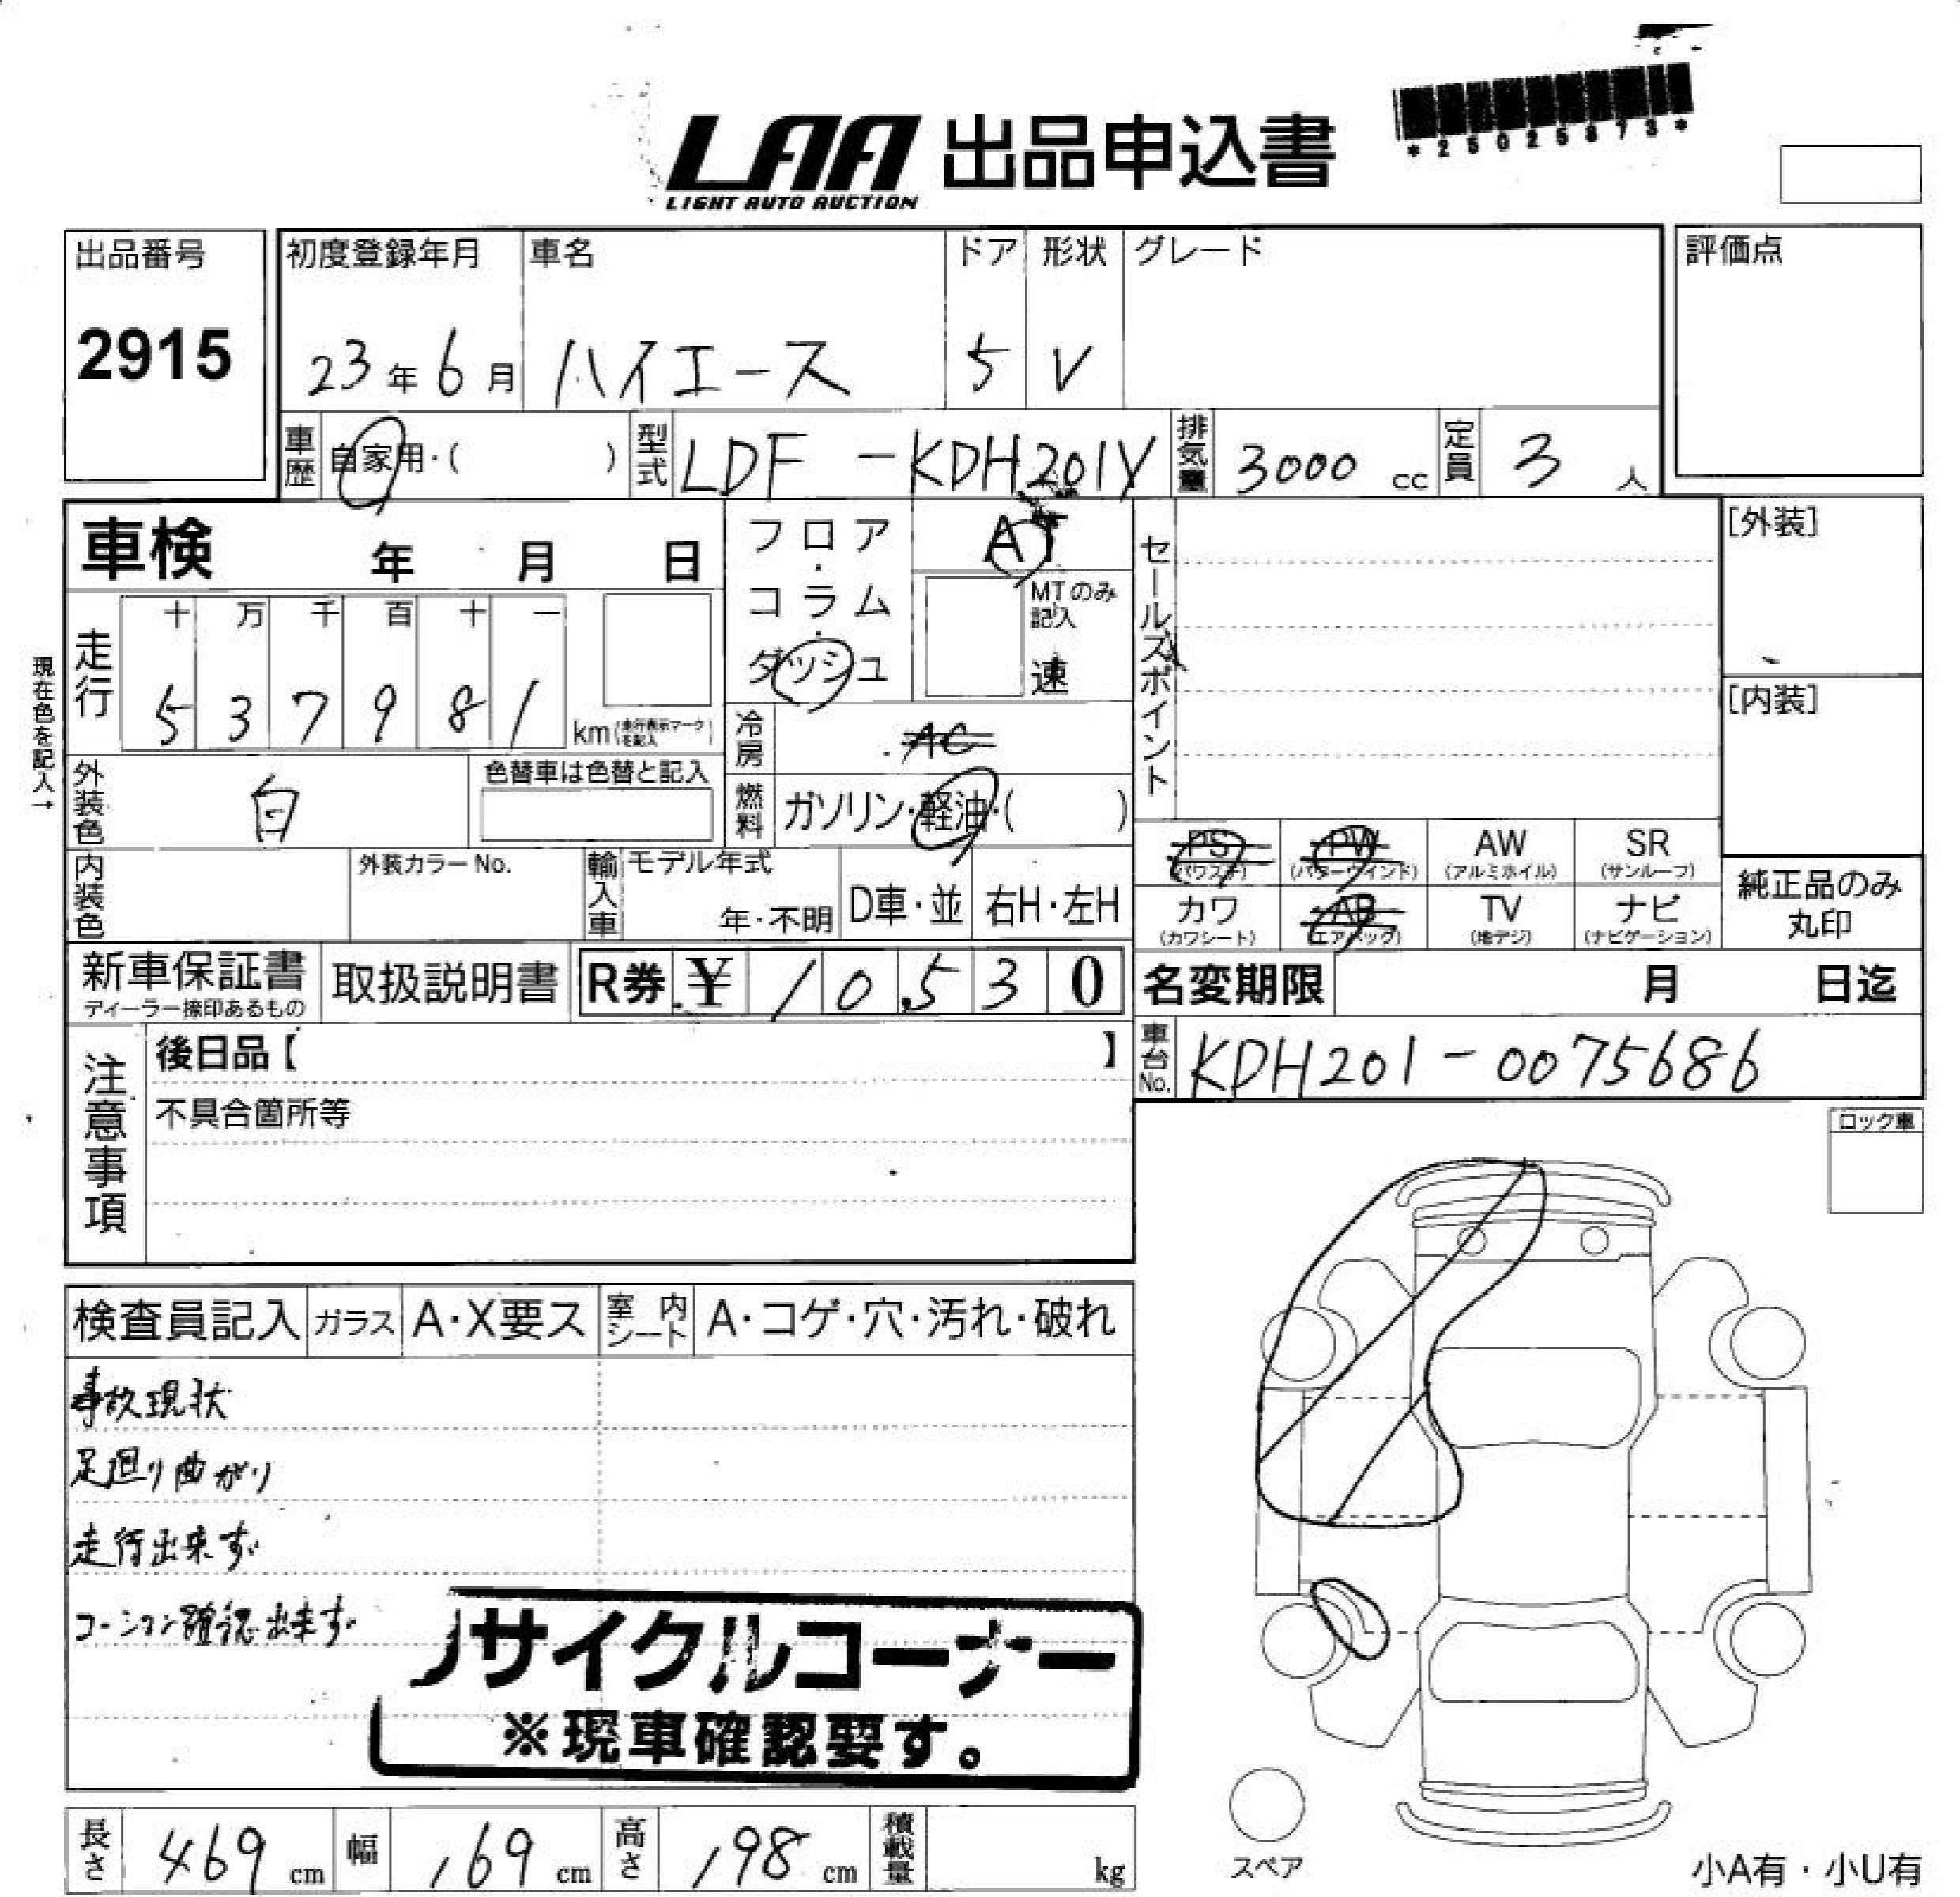 LAA 出品申込書
LIGHT AUTO AUCTION
*25025873*
出品番号
2915
初度登録年月
23年6月
車名
ハイエース
ドア
5
形状
V
グレード
評価点
車歴
自家用・( )
型式
LDF-KDH201V
排気量
3000 cc
定員
3人
車検 年 月 日
走行
十 万 千 百 十 一
5 3 7 9 8 1 km(走行表示マークを記入)
現在色を記入→
フロア・コラム・ダッシュ
AT
MTのみ記入
速
冷房
AC
燃料
ガソリン・軽油・( )
外装色
白
色替車は色替と記入
内装色
外装カラーNo.
輸入車
モデル年式
年・不明
D車・並
右H・左H
セールスポイント
[外装]
[内装]
PS (パワステ)
PW (パワーウインド)
AW (アルミホイル)
SR (サンルーフ)
カワ (カワシート)
AB (エアバッグ)
TV (地デジ)
ナビ (ナビゲーション)
純正品のみ
丸印
新車保証書
ディーラー捺印あるもの
取扱説明書
R券 ¥ 10,530
名変期限 月 日迄
車台No.
KDH201-0075686
注意事項
後日品【 】
不具合箇所等
ロック車
検査員記入
ガラス
A・X要ス
室内シート
A・コゲ・穴・汚れ・破れ
事故現状
足廻り曲がり
走行出来ず
コーション確認出来ず
リサイクルコーナー
※現車確認要す。
長さ 469 cm
幅 169 cm
高さ 198 cm
積載量 kg
スペア
小A有・小U有